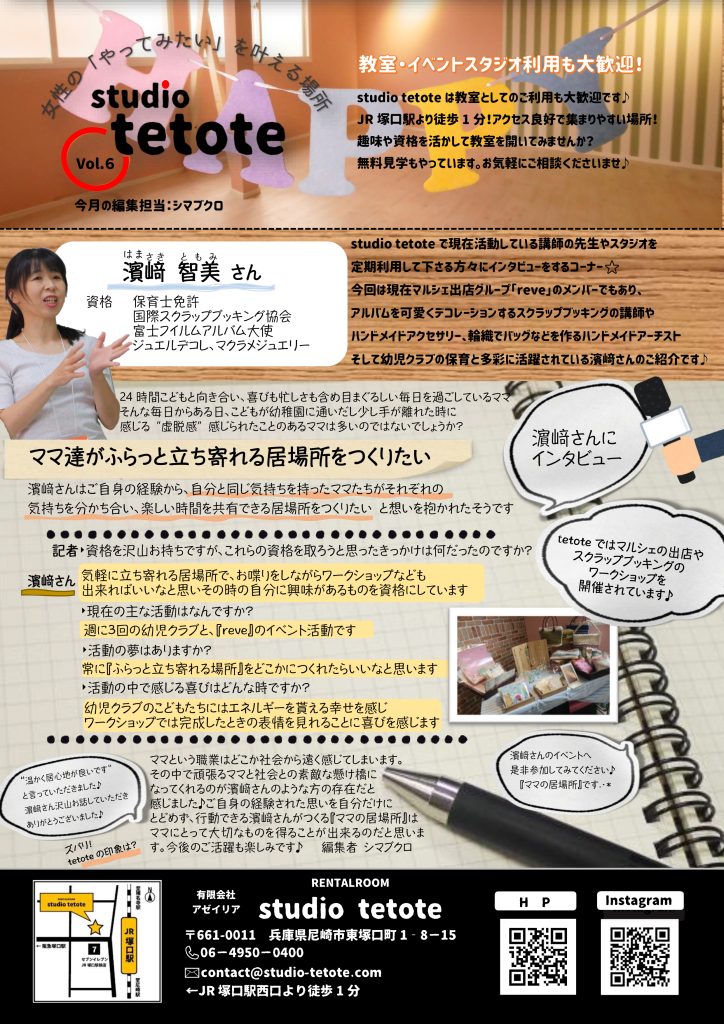 女性の「やってみたい」を叶える場所
studio
tetote
Vol.6
今月の編集担当：シマブクロ
HAPPY
教室・イベントスタジオ利用も大歓迎！
studio tetote は教室としてのご利用も大歓迎です♪
JR 塚口駅より徒歩 1 分！アクセス良好で集まりやすい場所！
趣味や資格を活かして教室を開いてみませんか？
無料見学もやっています。お気軽にご相談くださいませ♪
はまさき ともみ
濵﨑 智美 さん
資格 保育士免許
国際スクラップブッキング協会
富士フイルムアルバム大使
ジュエルデコレ、マクラメジュエリー
studio tetote で現在活動している講師の先生やスタジオを
定期利用して下さる方々にインタビューをするコーナー☆
今回は現在マルシェ出店グループ「reve」のメンバーでもあり、
アルバムを可愛くデコレーションするスクラップブッキングの講師や
ハンドメイドアクセサリー、輪織でバッグなどを作るハンドメイドアーチスト
そして幼児クラブの保育と多彩に活躍されている濵﨑さんのご紹介です♪
24 時間こどもと向き合い、喜びも忙しさも含め目まぐるしい毎日を過ごしているママ
そんな毎日からある日、こどもが幼稚園に通いだし少し手が離れた時に
感じる “虚脱感” 感じられたことのあるママは多いのではないでしょうか？
ママ達がふらっと立ち寄れる居場所をつくりたい
濵﨑さんに
インタビュー
濵﨑さんはご自身の経験から、自分と同じ気持ちを持ったママたちがそれぞれの
気持ちを分かち合い、楽しい時間を共有できる居場所をつくりたい と想いを抱かれたそうです
tetote ではマルシェの出店や
スクラップブッキングの
ワークショップを
開催されています♪
記者▸資格を沢山お持ちですが、これらの資格を取ろうと思ったきっかけは何だったのですか？
濵﨑さん 気軽に立ち寄れる居場所で、お喋りをしながらワークショップなども
出来ればいいなと思いその時の自分に興味があるものを資格にしています
▸現在の主な活動はなんですか？
週に3回の幼児クラブと、『reve』のイベント活動です
▸活動の夢はありますか？
常に『ふらっと立ち寄れる場所』をどこかにつくれたらいいなと思います
▸活動の中で感じる喜びはどんな時ですか？
幼児クラブのこどもたちにはエネルギーを貰える幸せを感じ
ワークショップでは完成したときの表情を見れることに喜びを感じます
“温かく居心地が良いです”
と言っていただきました♪
濵﨑さん沢山お話していただき
ありがとうございました♪
ズバリ！
tetote の印象は？
ママという職業はどこか社会から遠く感じてしまいます。
その中で頑張るママと社会との素敵な懸け橋に
なってくれるのが濵﨑さんのような方の存在だと
感じました♪ご自身の経験された思いを自分だけに
とどめず、行動できる濵﨑さんがつくる『ママの居場所』は
ママにとって大切なものを得ることが出来るのだと思いま
す。今後のご活躍も楽しみです♪ 編集者 シマブクロ
濵﨑さんのイベントへ
是非参加してみてください♪
『ママの居場所』です.･*
studio tetote
至尼崎
N
←阪急塚口駅
JR 塚口駅
7
セブンイレブン
JR 塚口駅前店
RENTALROOM
有限会社
アゼイリア
studio tetote
〒661-0011 兵庫県尼崎市東塚口町 1‐8－15
06－4950－0400
contact@studio-tetote.com
←JR 塚口駅西口より徒歩 1 分
H P
Instagram